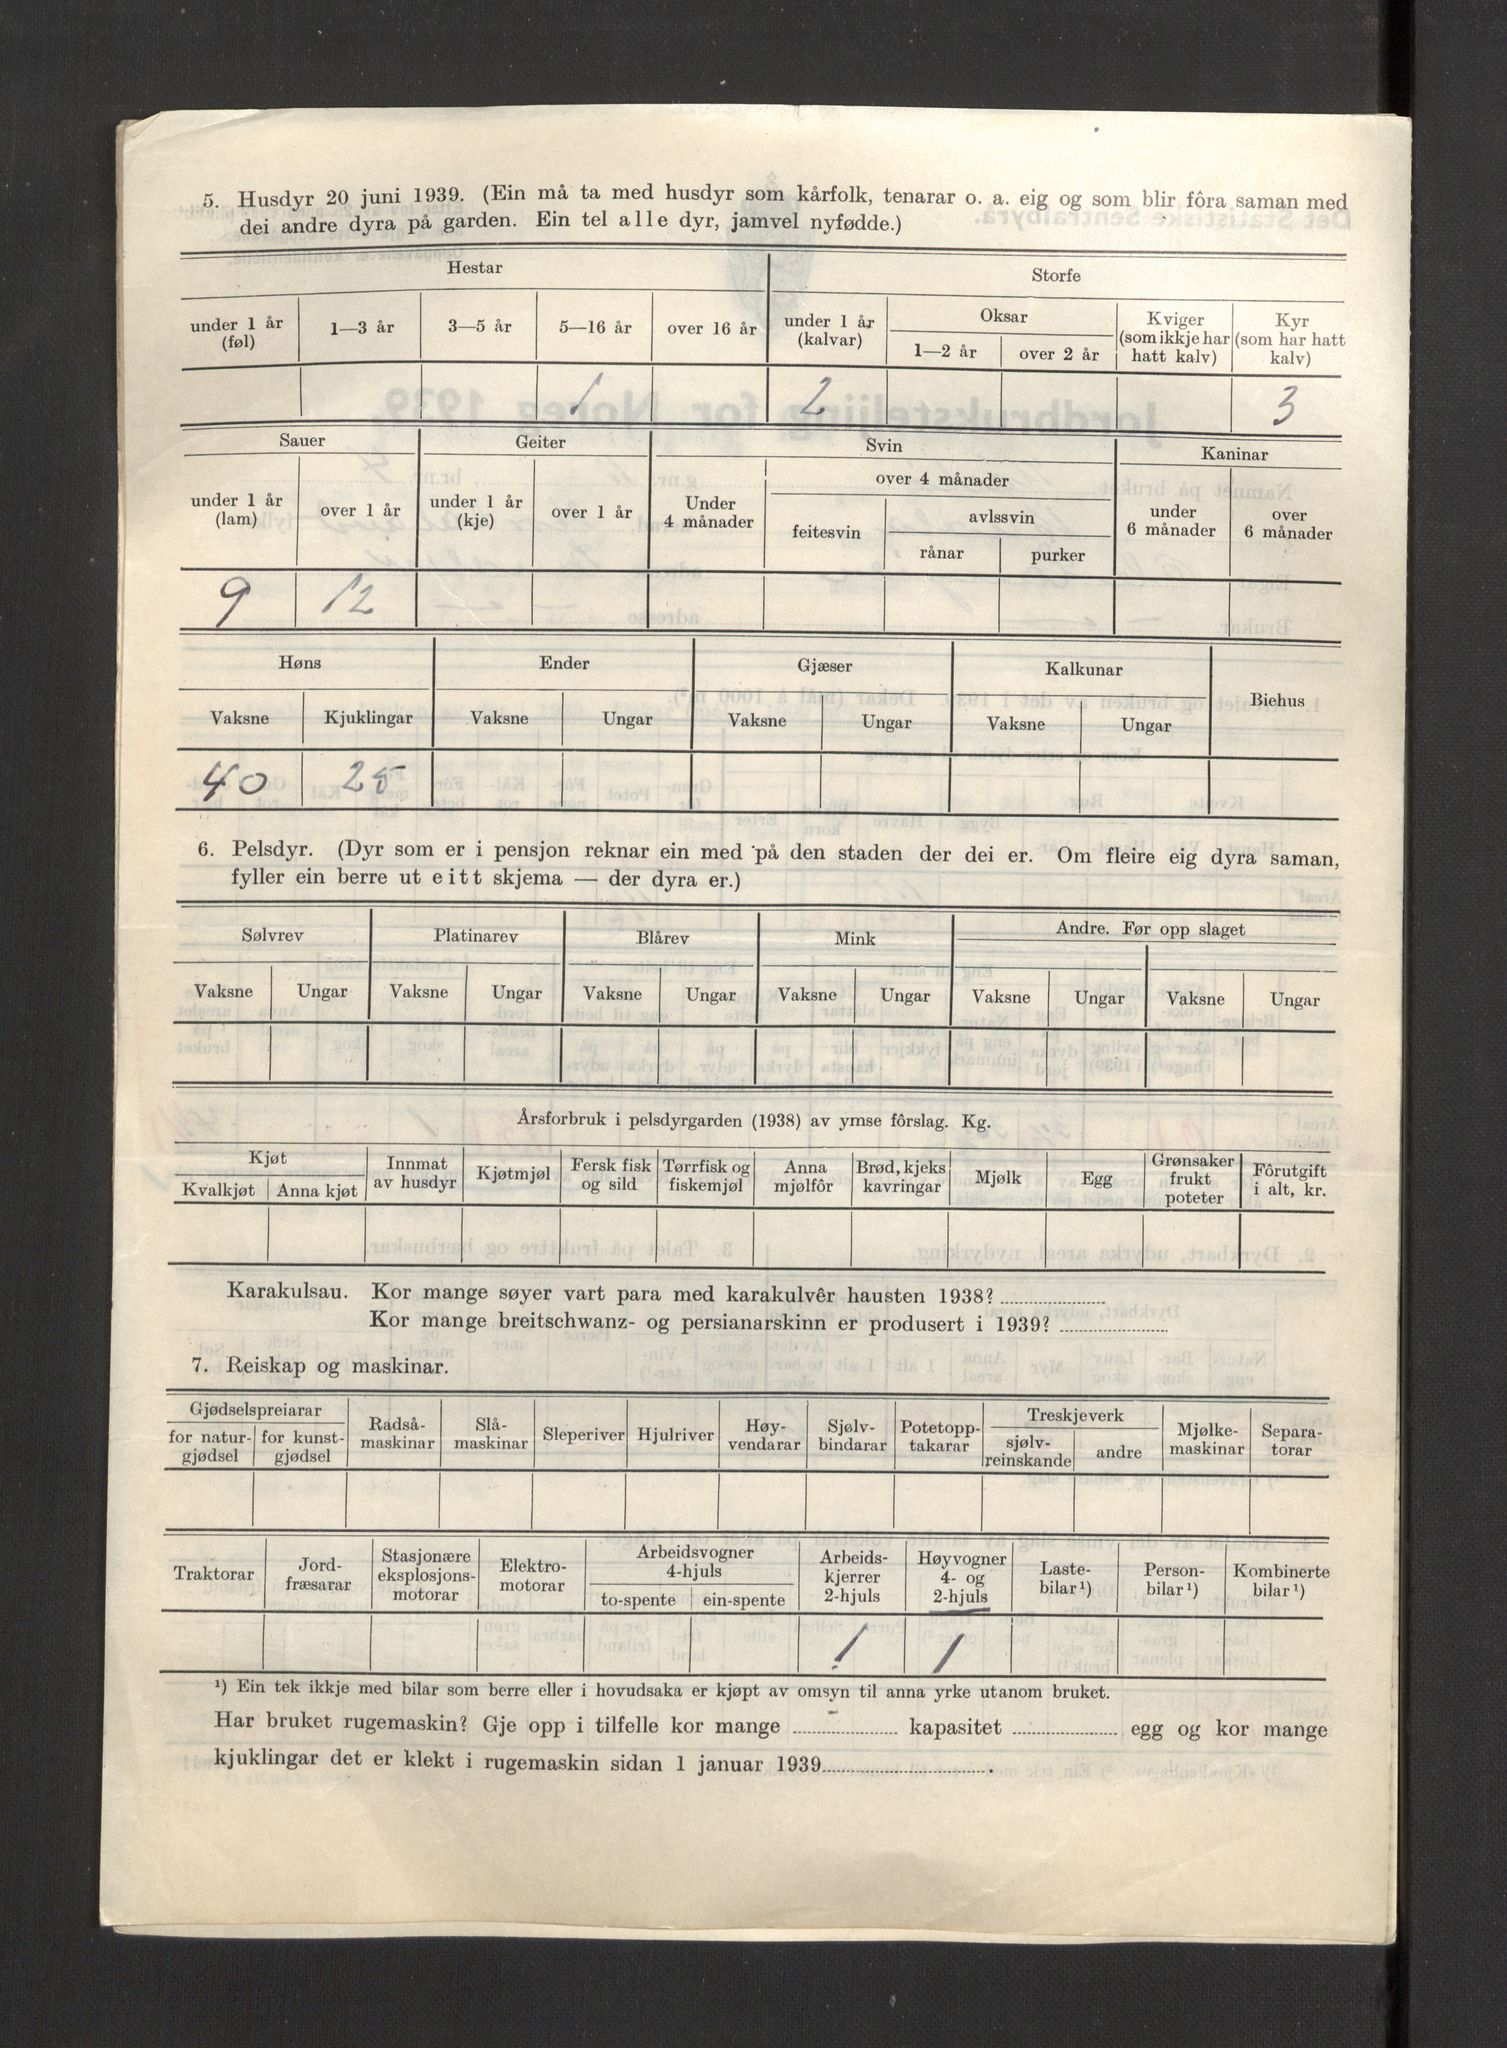 5. Husdyr 20 juni 1939. (Ein må ta med husdyr som kårfolk, tenarar o. a. eig og som blir fôra saman med
dei andre dyra på garden. Ein tel alle dyr, jamvel nyfødde.)
Hestar Storfe
under 1 år (føl) 1—3 år 3—5 år 5—16 år over 16 år under 1 år (kalvar) Oksar 1—2 år over 2 år Kviger (som ikkje har hatt kalv) Kyr (som har hatt kalv)
1 2 3
Sauer Geiter Svin Kaninar
under 1 år (lam) over 1 år under 1 år (kje) over 1 år Under 4 månader over 4 månader feitesvin avlssvin rånar purker under 6 månader over 6 månader
9 12
Høns Ender Gjæser Kalkunar Biehus
Vaksne Kjuklingar Vaksne Ungar Vaksne Ungar Vaksne Ungar
40 25
6. Pelsdyr. (Dyr som er i pensjon reknar ein med på den staden der dei er. Om fleire eig dyra saman,
fyller ein berre ut eitt skjema — der dyra er.)
Sølvrev Platinarev Blårev Mink Andre. Før opp slaget
Vaksne Ungar Vaksne Ungar Vaksne Ungar Vaksne Ungar Vaksne Ungar Vaksne Ungar
Årsforbruk i pelsdyrgarden (1938) av ymse fôrslag. Kg.
Kjøt Kvalkjøt Anna kjøt Innmat av husdyr Kjøtmjøl Fersk fisk og sild Tørrfisk og fiskemjøl Anna mjølfôr Brød, kjeks kavringar Mjølk Egg Grønsaker frukt poteter Fôrutgift i alt, kr.
Karakulsau. Kor mange søyer vart para med karakulvêr hausten 1938?
Kor mange breitschwanz- og persianarskinn er produsert i 1939?
7. Reiskap og maskinar.
Gjødselspreiarar for natur-gjødsel for kunst-gjødsel Radså-maskinar Slå-maskinar Sleperiver Hjulriver Høy-vendarar Sjølv-bindarar Potetopp-takarar Treskjeverk sjølv-reinskande andre Mjølke-maskinar Separa-torar
Traktorar Jord-fræsarar Stasjonære eksplosjons-motorar Elektro-motorar Arbeidsvogner 4-hjuls to-spente ein-spente Arbeids-kjerrer 2-hjuls Høyvogner 4- og 2-hjuls Laste-bilar ¹) Person-bilar ¹) Kombinerte bilar ¹)
1 1
¹) Ein tek ikkje med bilar som berre eller i hovudsaka er kjøpt av omsyn til anna yrke utanom bruket.
Har bruket rugemaskin? Gje opp i tilfelle kor mange kapasitet egg og kor mange
kjuklingar det er klekt i rugemaskin sidan 1 januar 1939